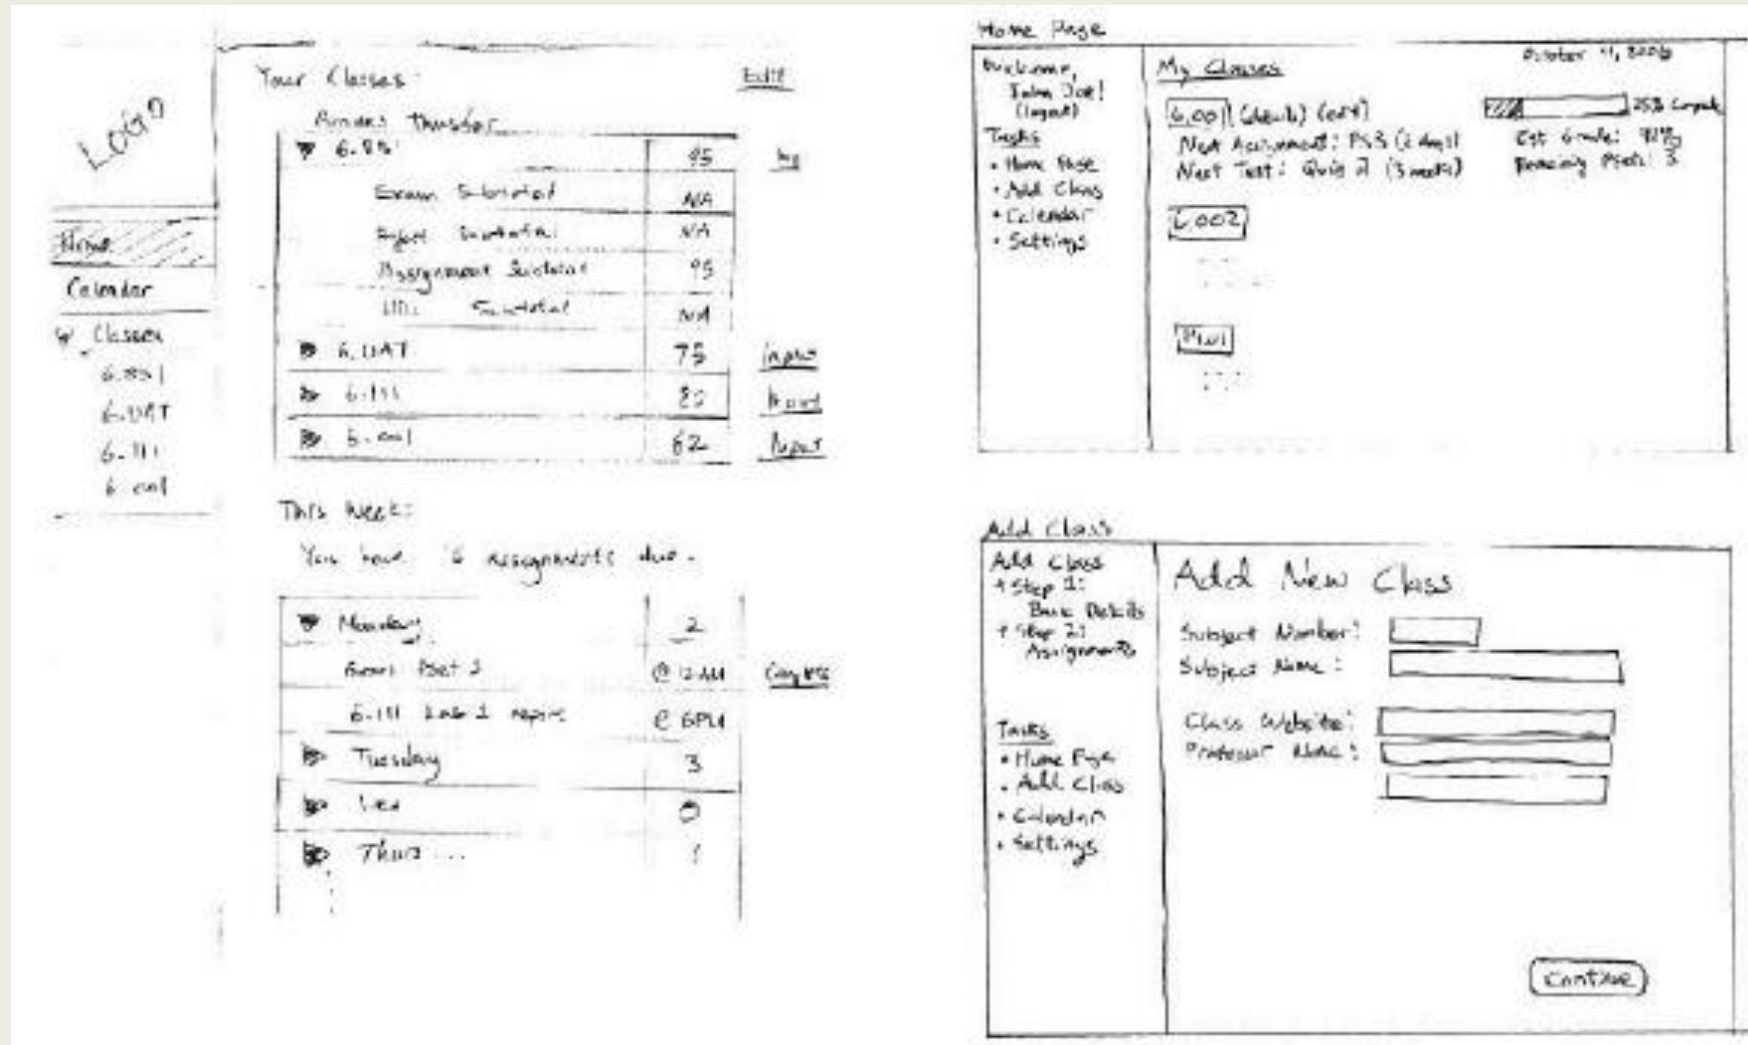 LOGO
Home
Calendar
Classes
6.851
6.UAT
6.111
6.001
Your Classes:
Edit
6.831
95
Exam Subtotal
N/A
Subtotal
N/A
Assignment Subtotal
95
Subtotal
N/A
6.UAT
75
Input
6.111
Input
6.001
62
Input
This Week:
You have 6 assignments due.
Monday
2
PSet 1
@ 12AM
Complete
6.111 Lab 1 report
@ 6PM
Tuesday
3
Wed
0
Thurs ...
1
Home Page
Welcome,
John Doe!
(logout)
Tasks
• Home Page
• Add Class
• Calendar
• Settings
My Classes
October 11, 2006
6.001 (details) (edit)
25% Complete
Next Assignment: PS3 (2 days)
Est Grade: 92%
Next Test: Quiz 2 (3 weeks)
Remaining Psets: 3
6.002
Add Class
Add Class
Step 1:
Basic Details
Step 2:
Assignments
Tasks
• Home Page
• Add Class
• Calendar
• Settings
Add New Class
Subject Number:
Subject Name:
Class Website:
Professor Name:
Continue